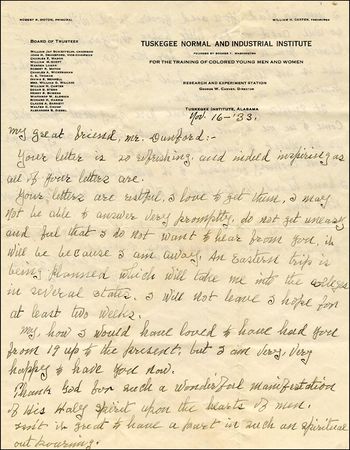 ROBERT R. MOTON, PRINCIPAL
WILLIAM H. CARTER, TREASURER
BOARD OF TRUSTEES
TUSKEGEE NORMAL AND INDUSTRIAL INSTITUTE
FOUNDED BY BOOKER T. WASHINGTON
FOR THE TRAINING OF COLORED YOUNG MEN AND WOMEN
RESEARCH AND EXPERIMENT STATION
GEORGE W. CARVER, DIRECTOR
TUSKEGEE INSTITUTE, ALABAMA
WILLIAM JAY SCHIEFFELIN, CHAIRMAN
CHARLES E. MASON
ROBERT R. MOTON
WILLIAM M. SCOTT
EDGAR B. STERN
ALEXANDER B. SIEGEL
Nov. 16-'33.
My great friend, Mr. Dunford:-
Your letter is so refreshing, and indeed inspiring as
all of your letters are.
Your letters are restful, I love to get them, I may
not be able to answer very promptly, do not get uneasy
and feel that I do not want to hear from you, it
will be because I am away, An Eastern trip is
being planned which will take me into the colleges
in several states. I will not leave I hope for
at least two weeks.
My, how I would have loved to have had you
from 19 up to the present, but I am very, very
happy to have you now.
Thank God for such a wonderful manifestation
of His Holy Spirit upon the hearts of men,
isn't it great to have a part in such an spiritual
out pouring.